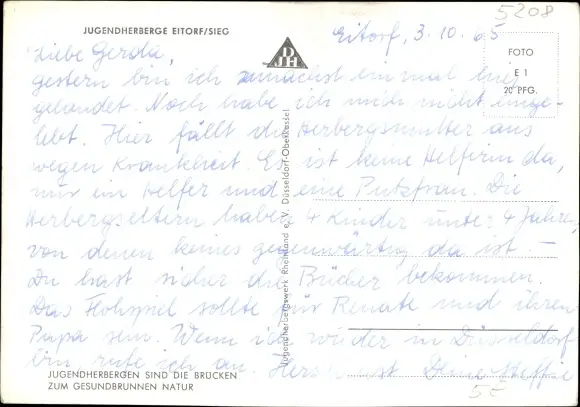 5208
JUGENDHERBERGE EITORF/SIEG
Eitorf, 3.10.65
DJH
FOTO
E 1
20 PFG.
Liebe Gerda,
gestern bin ich zunächst einmal hier
gelandet. Noch habe ich mich nicht einge-
lebt. Hier fällt die Herbergsmutter aus
wegen Krankheit. Es ist keine Helferin da,
nur ein Helfer und eine Putzfrau. Die
Herbergseltern haben 4 Kinder unter 4 Jahre,
von denen keines gegenwärtig da ist. —
Du hast sicher die Bücher bekommen.
Das Flohspiel sollte für Renate und ihren
Papa sein. Wenn ich wieder in Düsseldorf
bin rufe ich an. Herzlichst Deine Steffie
Jugendherbergswerk Rheinland e. V. Düsseldorf-Oberkassel
JUGENDHERBERGEN SIND DIE BRÜCKEN
ZUM GESUNDBRUNNEN NATUR